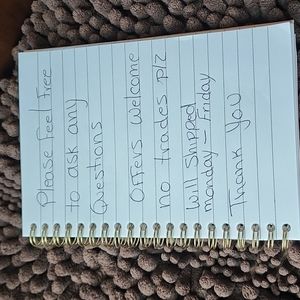 Please Feel Free
to ask any
Questions
Offers Welcome
no trades plz
Will Shipped
monday - Friday
Thank You